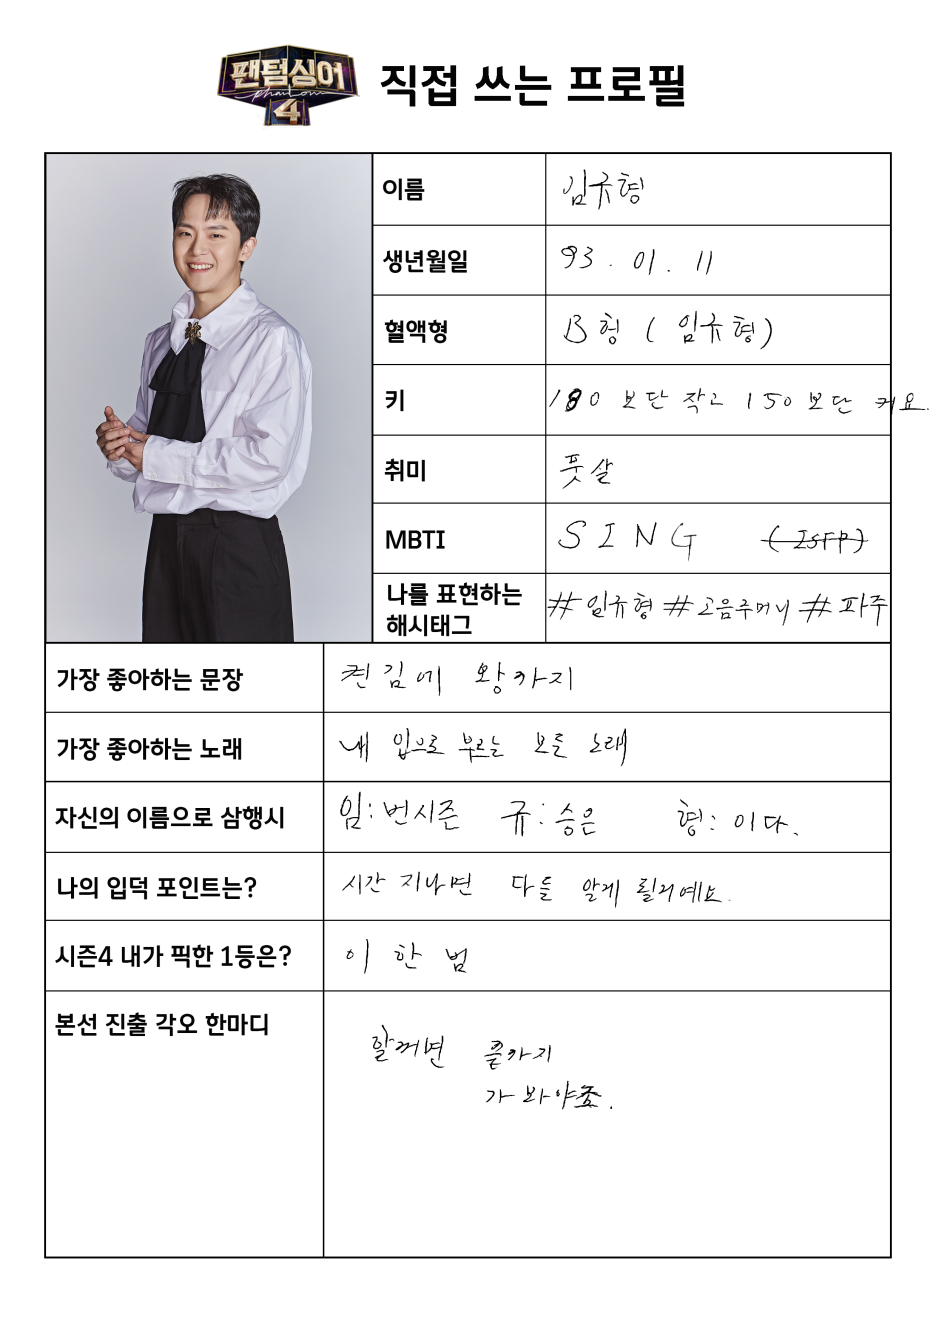 팬텀싱어
Phantom
4
직접 쓰는 프로필
이름 임규형
생년월일 93. 01. 11
혈액형 B형 (임규형)
키 180 보단 작고 150 보단 커요.
취미 풋살
MBTI SING (ISFP)
나를 표현하는
해시태그 #임규형 #고음주머니 #파주
가장 좋아하는 문장 켠김에 왕까지
가장 좋아하는 노래 내 입으로 부르는 모든 노래
자신의 이름으로 삼행시 임:번시즌 규:승은 형:이다.
나의 입덕 포인트는? 시간 지나면 다들 알게 될거예요.
시즌4 내가 픽한 1등은? 이 한 범
본선 진출 각오 한마디 할꺼면 끝까지
가 봐야죠.